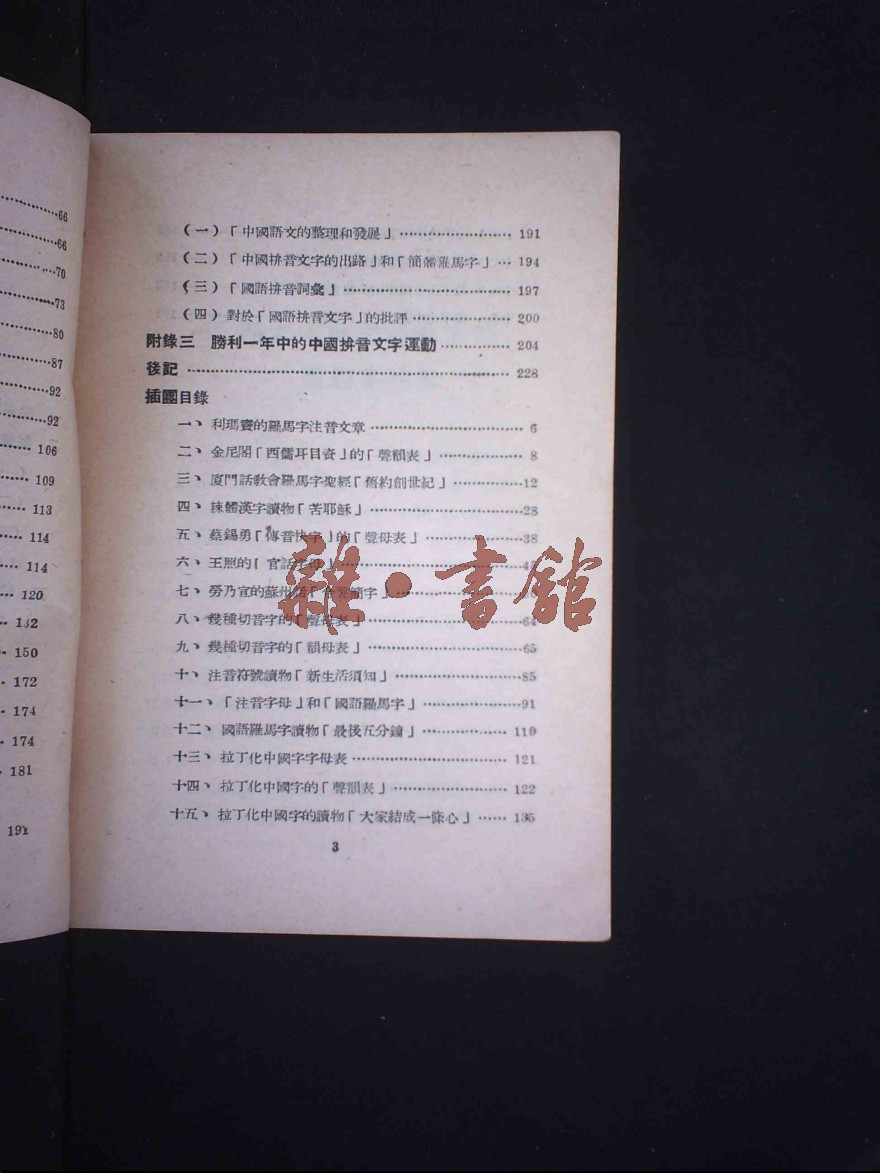 66
66
70
73
80
87
92
92
106
109
113
114
114
120
132
150
172
174
174
181
191
(一)「中國語文的整理和發展」 191
(二)「中國拼音文字的出路」和「簡體羅馬字」 194
(三)「國語拼音詞彙」 197
(四)對於「國語拼音文字」的批評 200
附錄三 勝利一年中的中國拼音文字運動 204
後記 228
插圖目錄
一、利瑪竇的羅馬字注音文章 6
二、金尼閣「西儒耳目資」的「聲韻表」 8
三、廈門話教會羅馬字聖經「舊約創世紀」 12
四、諫體漢字讀物「苦耶穌」 28
五、蔡錫勇「傳音快字」的「聲母表」 38
六、王照的「官話字母」
七、勞乃宣的蘇州話「簡字」
八、幾種切音字的「聲母表」 64
九、幾種切音字的「韻母表」 65
十、注音符號讀物「新生活須知」 85
十一、「注音字母」和「國語羅馬字」 91
十二、國語羅馬字讀物「最後五分鐘」 110
十三、拉丁化中國字字母表 121
十四、拉丁化中國字的「聲韻表」 122
十五、拉丁化中國字的讀物「大家結成一條心」 135
3
雜·書館